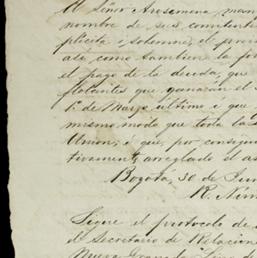 El Señor Arosemena man
nombre de sus comitente
plícita i solemne, el prin
así como tambien la fo
el pago de la deuda, que
flotantes que ganarán el
1º de Mayo último i que
mismo modo que toda la
Union; i que, por consigu
tivament arreglado el as
Bogotá, 30 de Jun
R. Núñ
Sigue el protocolo de
el Secretario de Relacion